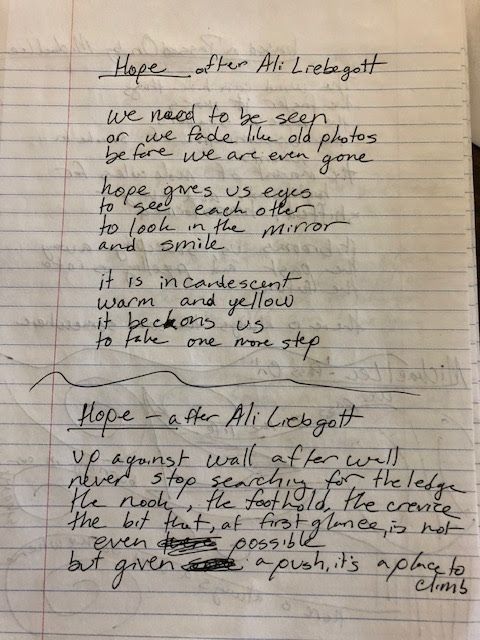 Hope after Ali Liebegott
we need to be seen
or we fade like old photos
before we are even gone
hope gives us eyes
to see each other
to look in the mirror
and smile
it is incandescent
warm and yellow
it beckons us
to take one more step
Hope - after Ali Liebgott
up against wall after wall
never stop searching for the ledge
the nook, the foothold, the crevice
the bit that, at first glance, is not
even possible
but given a push, it's a place to
climb